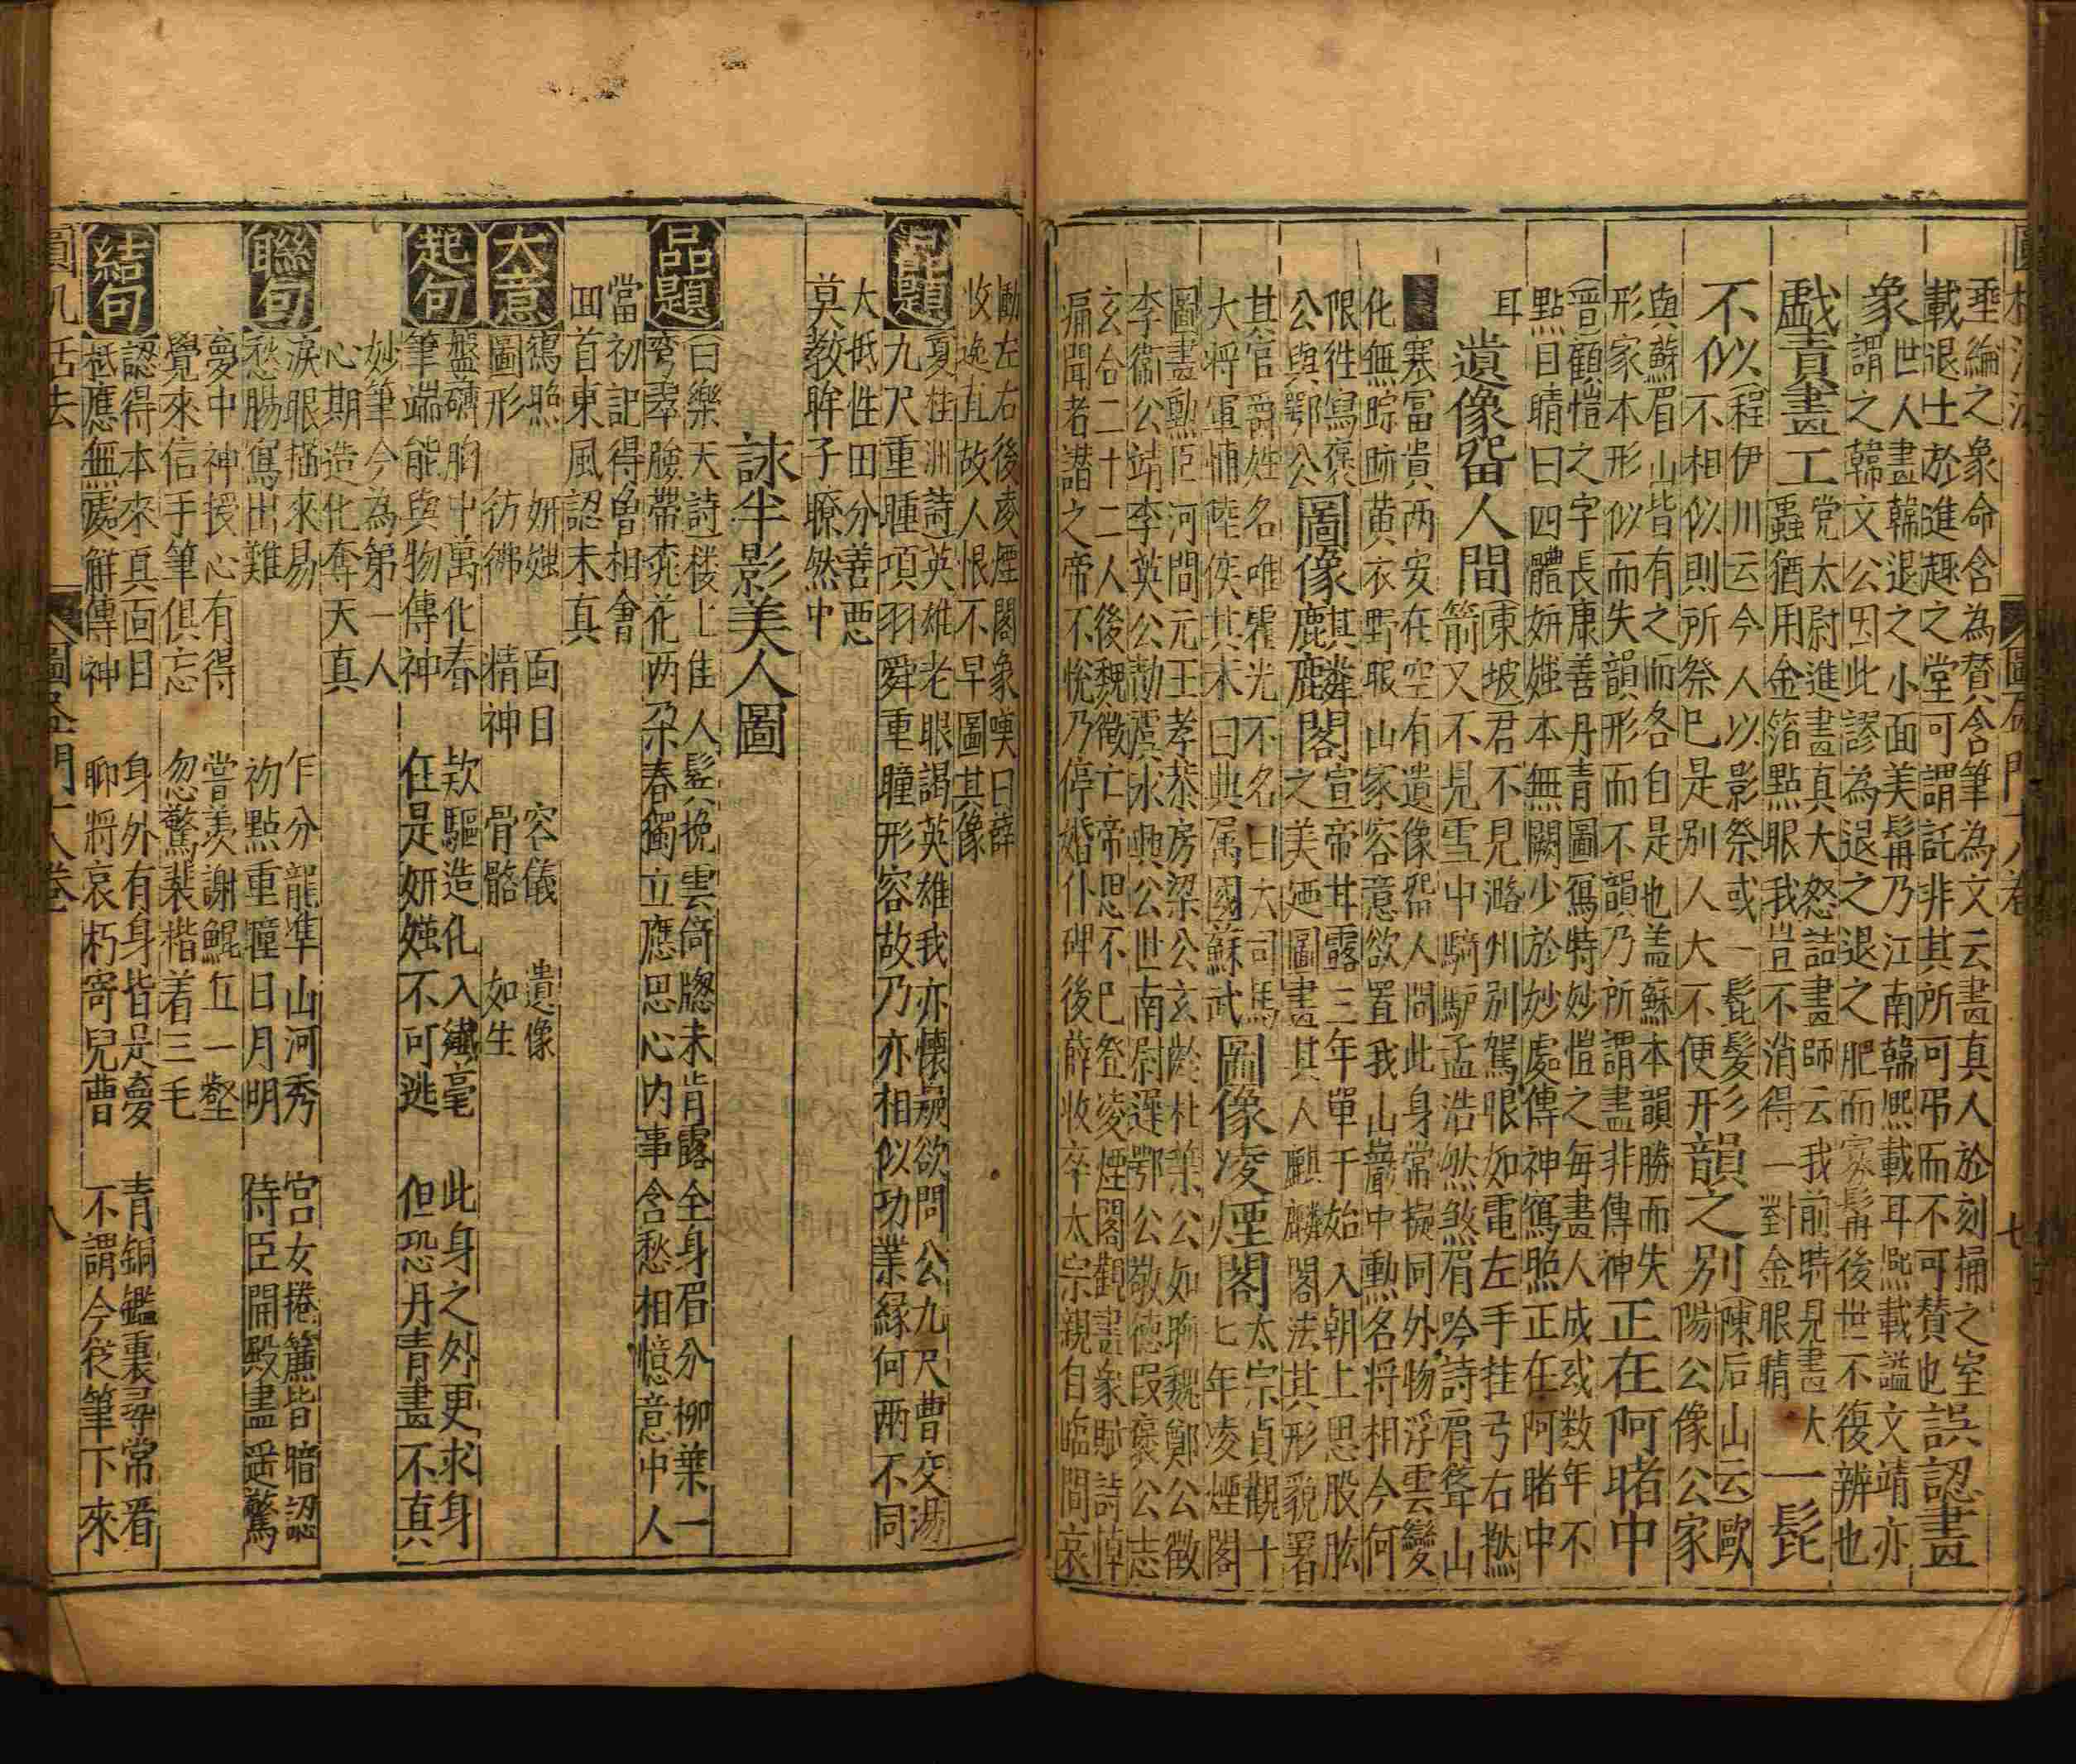 垂綸之象命含為賛含筆為文云畫真人於刻桷之室
載退士於進趣之堂可謂託非其所可弔而不可賛也誤認畫
象世人畫韓退之小面美髯乃江南韓熙載耳熙載謚文靖亦
謂之韓文公因此謬為退之退之肥而寡髯後世不復辨也
戲責畫工党太尉進畫真大怒詰畫師云我前時見畫大
蟲猶用金箔點眼我豈不消得一對金眼睛一髭
不似程伊川云今人以影祭或一髭髮
不相似則所祭巳是別人大不便形韻之別陳后山云歐陽公像公家
與蘇眉山皆有之而各自是也盖蘇本韻勝而失
形家本形似而失韻形而不韻乃所謂畫非傳神正在阿堵中
晋顧愷之字長康善丹青圖寫特妙愷之每畫人成或数年不
點目睛曰四體妍媸本無闕少於妙處傳神寫照正在阿睹中
耳
遺像留人間東坡君不見潞州別駕眼如電左手挂弓右撚
箭又不見雪中騎驢孟浩然煞眉吟詩肩聳山
寒冨貴两安在空有遺像留人間此身常擬同外物浮雲變
化無踪跡黄衣野服山家容意欲置我山巖中勳名將相今何
限徃寫褒公與鄂公圖像麒麟閣宣帝甘露三年單于始入朝上思股肱
之美廼圖畫其人麒麟閣法其形貌署
其官爵姓名唯霍光不名曰大司馬
大將軍博陸侯其末曰典属國蘇武圖像凌煙閣太宗貞觀十七年凌煙閣
圖畫勳臣河間元王孝恭房梁公玄齡杜萊公如晦魏鄭公徵
李衞公靖李英公勣虞永興公世南尉遲鄂公敬德叚褒公志
玄合二十二人後魏徵亡帝思不巳登凌煙閣觀畫象賦詩悼
痛聞者譛之帝不悅乃停婚仆碑後薛收卒太宗親自臨問哀
動左右後凌煙閣象嘆曰薛
收逸㐀故人恨不早圖其像
品題
夏桂洲詩英雄老眼謁英雄我亦懷
欲問公九尺曹交湯
九尺重瞳項羽舜重瞳形容故乃亦相似功業緣何两不同
大抵性田分善惡
莫教眸子瞭然中
詠半影美人圖
品題
白樂天詩楼上佳人髻挽雲倚牕未肯露全身眉分柳葉一
弯翠臉帶桃花两朶春獨立應思心内事含愁相憶意中人
當初記得曾相會
囬首東風認未真
大意
寫照 妍媸 面目 容儀 遺像
圖形 彷彿 精神 骨骼 如生
起句
盤礴胸中萬化春 欵驅造化入纎毫 此身之外更求身
筆端能與物傳神 任是妍媸不可逃 但恐丹青畫不真
妙筆今為第一人
心期造化奪天真
聯句
淚眼描來易 乍分龍凖山河秀 宫女捲簾皆暗認
愁腸寫出難 初點重瞳日月明 侍臣開殿盡遥驚
夣中神授心有得 嘗羡謝鯤丘一壑
覺來信手筆俱忘 忽驚裴楷着三毛
結句
認得本來真面目 身外有身皆是夣 青銅鑑裏尋常看
秪應無處觧傳神 聊將哀朽寄兒曹 不謂今從筆下來